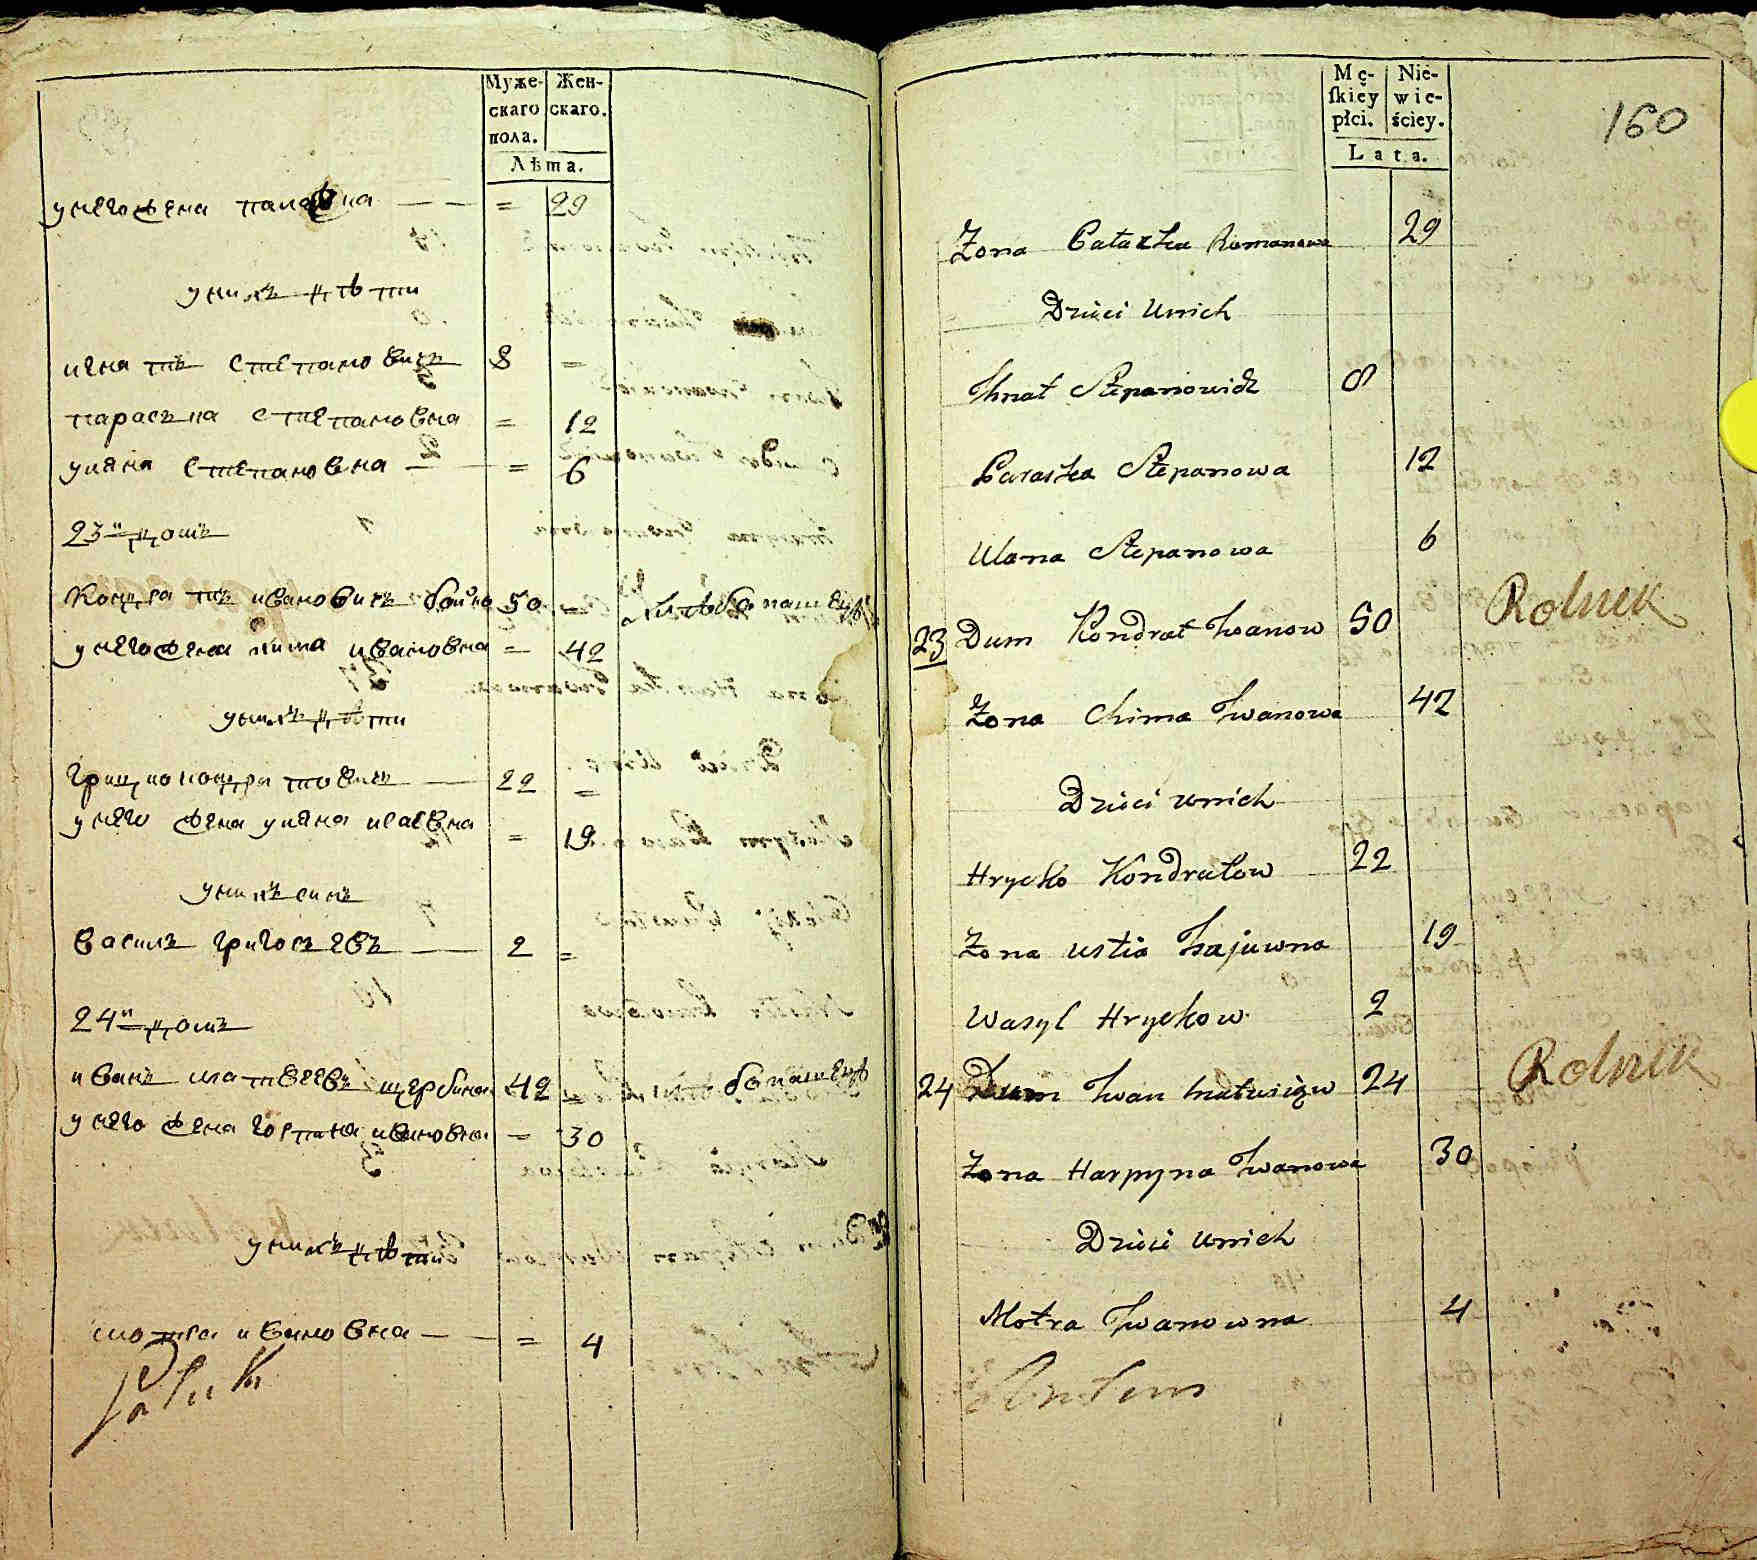 Муже-
скаго
пола.
Жен-
скаго.
Лѣта.
унего жена палажка — — = 29
унихъ дѣти
игнатъ степановичъ 8 =
параска степановна = 12
уляна степановна — = 6
23й домъ
Кондратъ ивановичъ бойко 50 = хлѣбопашецъ
унего жена хима ивановна = 42
унихъ дѣти
Грицко кондратовичъ — 22 =
унего жена уляна исаевна = 19
унихъ синъ
василь григорьевъ — 2 =
24й домъ
иванъ матвѣевъ щербина 42 = хлѣбопашецъ
унего жена горпина ивановна = 30
унихъ дѣти
мотра ивановна — = 4
160
Mę-
ſkiey
płci.
Nie-
wie-
ściey.
Lata.
Żona Pałaszka Romanowa 29
Dzieci Unich
Ihnat Stepanowicz 8
Paraska Stepanowa 12
Ulana Stepanowa 6
23 Dum Kondrat Iwanow 50 Rolnik
Żona Chima Iwanowa 42
Dzieci unich
Hrycko Kondratow 22
Żona Ustia Isajuwna 19
Wasyl Hryckow 2
24 Dum Iwan Matwiejew 24 Rolnik
Żona Harpyna Iwanowa 30
Dzieci unich
Motra Iwanowna 4